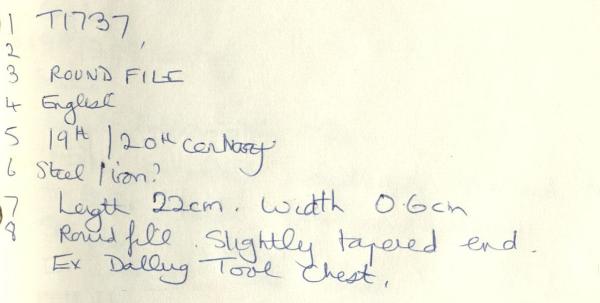 1 T1737,
2
3 ROUND FILE
4 English
5 19th / 20th century
6 Steel / iron?
7 Length 22cm. Width 0.6cm
8 Round file. Slightly tapered end.
Ex Tool Chest.